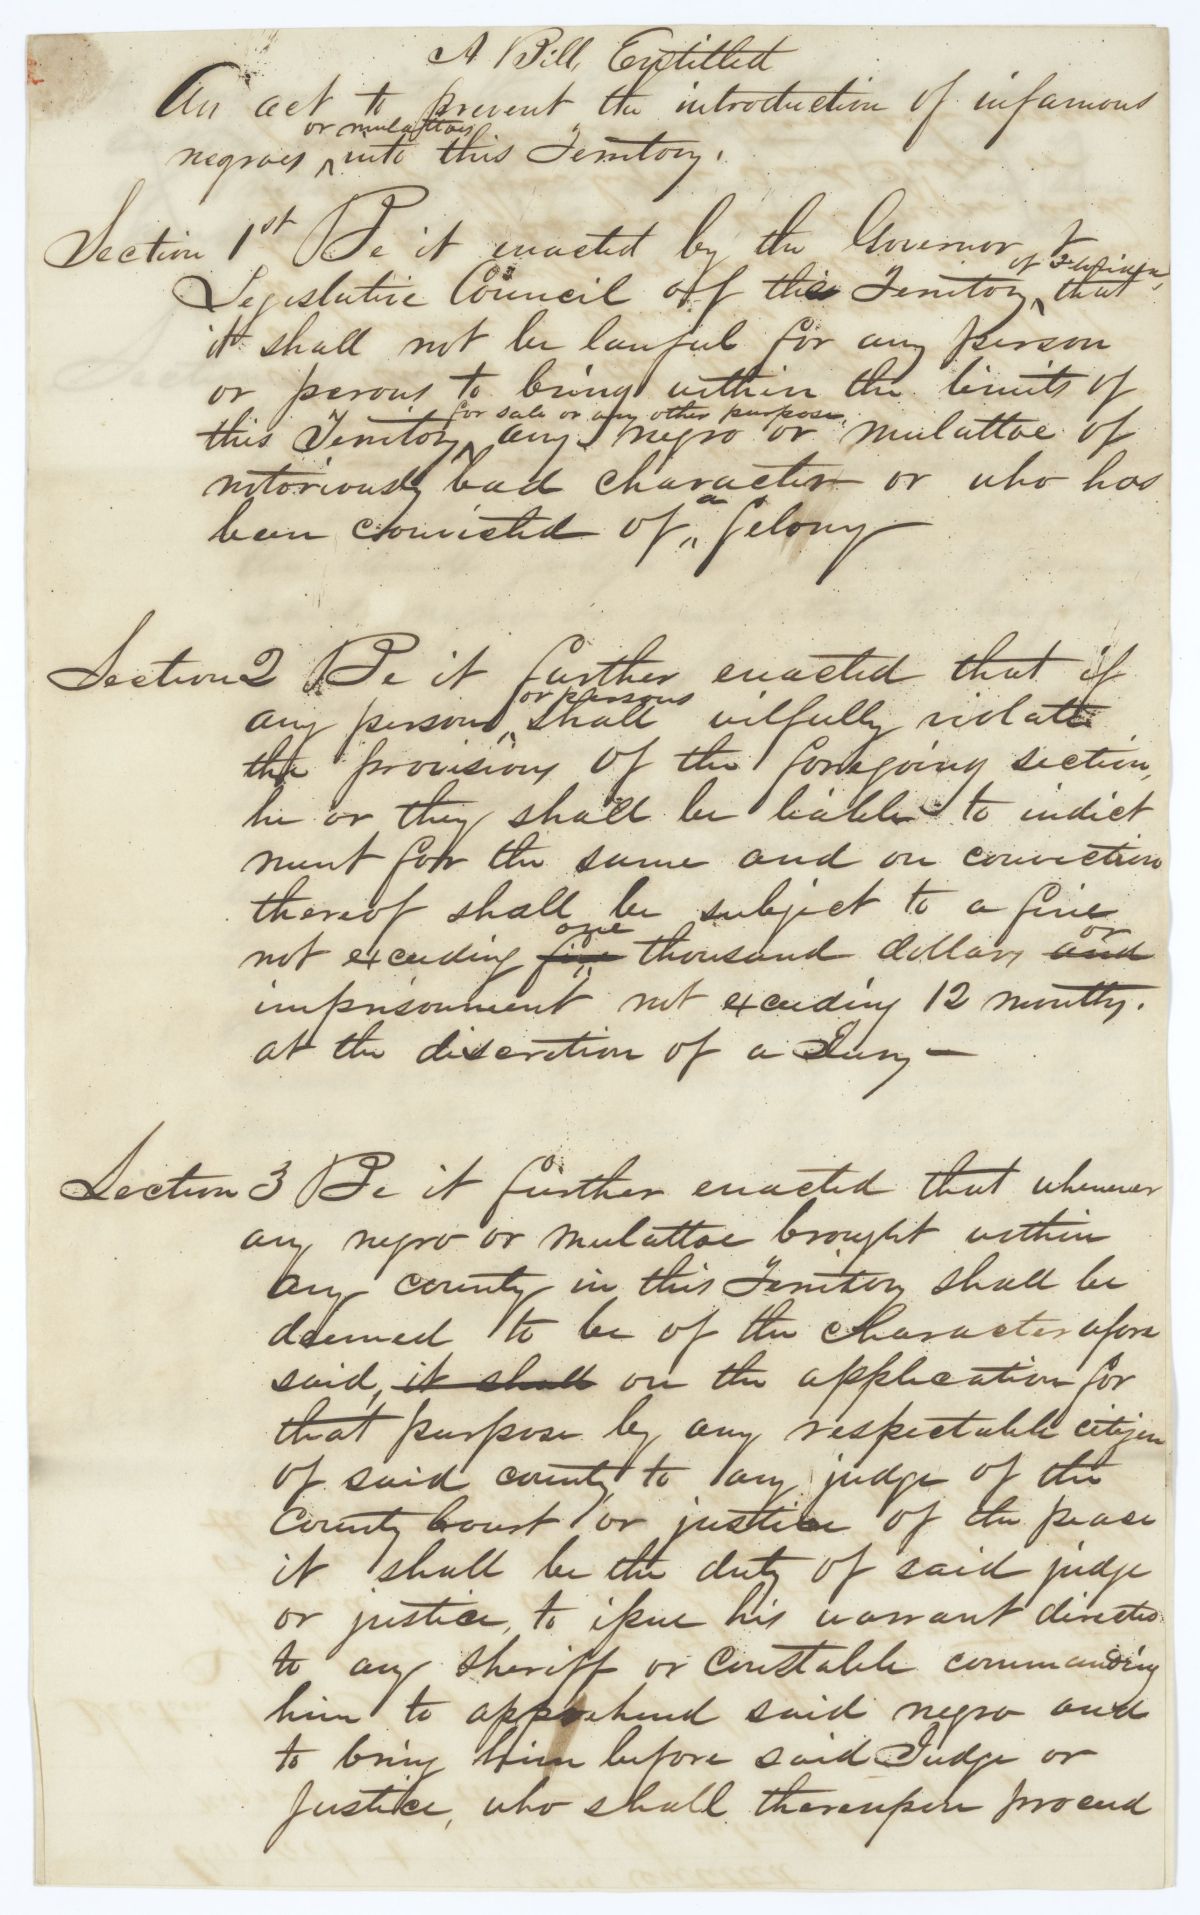 A Bill, Entitled
An act to prevent the introduction of infamous
or mulattoes
negroes ^ into this Territory.
Section 1st Be it enacted by the Governor &
of Florida,
Legislative Council of the Territory ^ that
it shall not be lawful for any person
or persons to bring within the limits of
for sale or any other purpose
this Territory ^ any negro or mulattoe of
notoriously bad character or who has
a
been convicted of ^ felony
Section 2 Be it further enacted that if
or persons
any person ^ shall wilfully violate
the provisions of the foregoing section,
he or they shall be liable to indict
ment for the same and on conviction
thereof shall be subject to a fine
one or
not exceeding five thousand dollars and
imprisonment not exceeding 12 months.
at the discretion of a Jury —
Section 3 Be it further enacted that whenever
any negro or mulattoe brought within
any county in this Territory shall be
deemed to be of the character afore
said, it shall on the application for
that purpose by any respectable citizen
of said county to any judge of the
County Court or justice of the peace
it shall be the duty of said judge
or justice, to issue his warrant directed
to any sheriff or constable commanding
him to apprehend said negro and
to bring him before said Judge or
Justice, who shall thereupon proceed